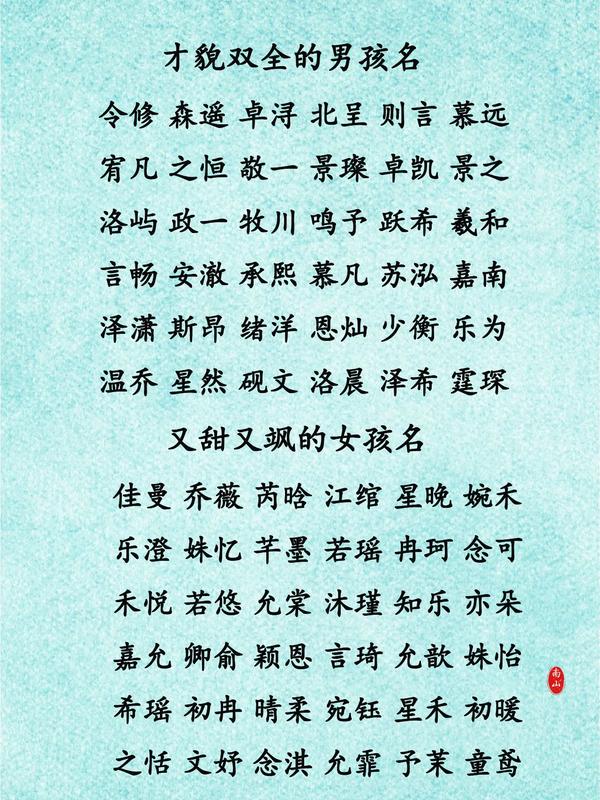 才貌双全的男孩名
令修 森遥 卓浔 北呈 则言 慕远
宥凡 之恒 敬一 景璨 卓凯 景之
洛屿 政一 牧川 鸣予 跃希 羲和
言畅 安澈 承熙 慕凡 苏泓 嘉南
泽潇 斯昂 绪洋 恩灿 少衡 乐为
温乔 星然 砚文 洛晨 泽希 霆琛
又甜又飒的女孩名
佳曼 乔薇 芮晗 江绾 星晚 婉禾
乐澄 姝忆 芊墨 若瑶 冉珂 念可
禾悦 若悠 允棠 沐瑾 知乐 亦朵
嘉允 卿俞 颖恩 言琦 允歆 姝怡
希瑶 初冉 晴柔 宛钰 星禾 初暖
之恬 文妤 念淇 允霏 予茉 童鸢
南山